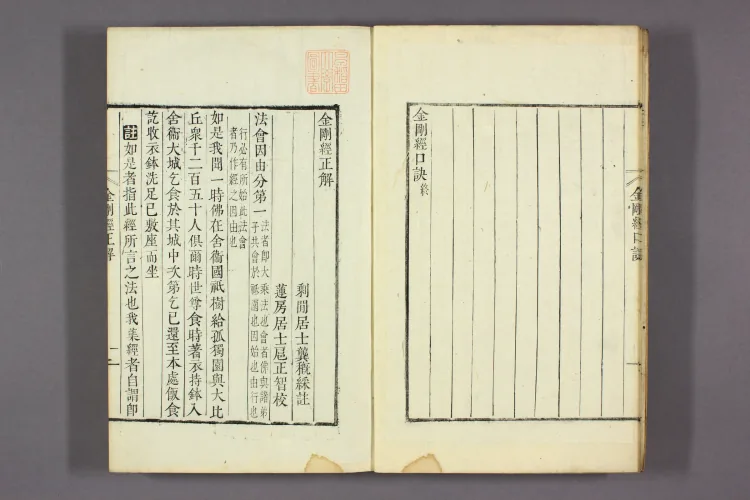 金剛經口訣
金剛經口訣終
金剛經正解
剩閒居士龔穊綵註
蓮房居士扈正智校
法會因由分第一法者即大乘法也會者佛與諸弟
子共會於祗園也因始也由行也
行必有所始此法會
者乃作經之因由也
如是我聞一時佛在舍衞國祇樹給孤獨園與大比
丘衆千二百五十人俱爾時世尊食時著衣持鉢入
舍衞大城乞食於其城中次第乞已還至本處飯食
訖收衣鉢洗足已敷座而坐
註如是者指此經所言之法也我集經者自謂即
金剛經正解